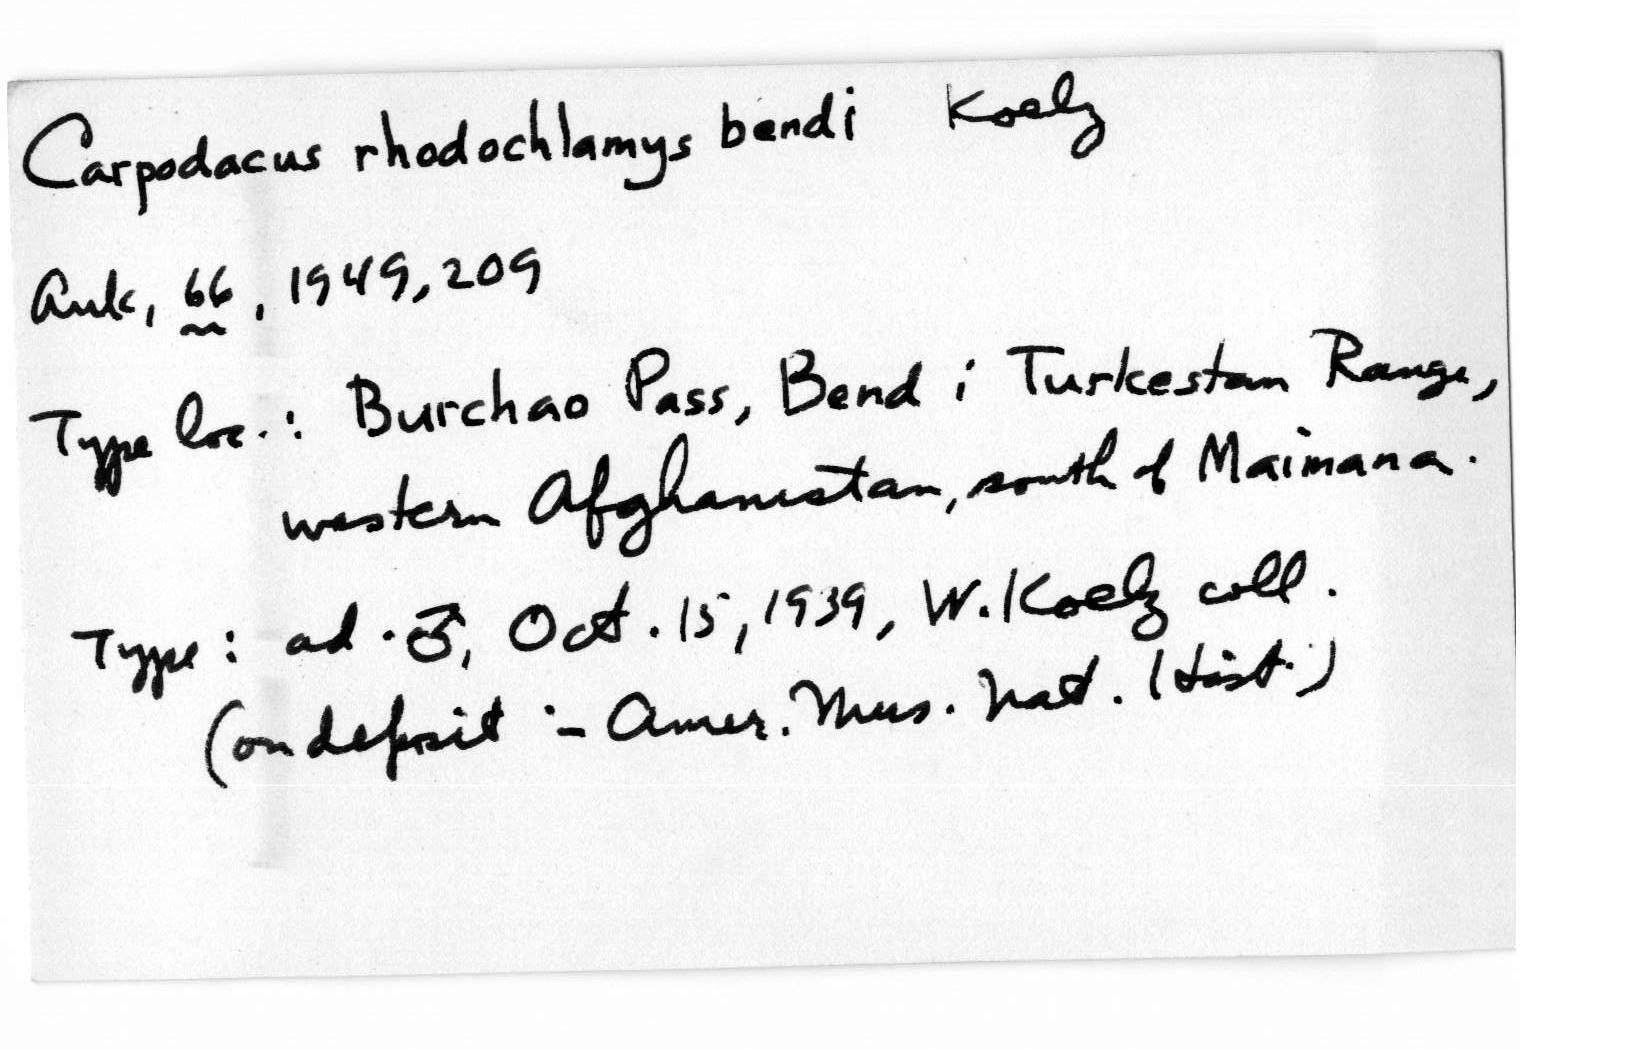 Carpodacus rhodochlamys bendi Koelz
Auk, 66, 1949, 209
Type loc.: Burchao Pass, Bend i Turkestan Range,
western Afghanistan, south of Maimana.
Type: ad. ♂, Oct. 15, 1939, W. Koelz coll.
(on deposit in Amer. Mus. Nat. Hist.)